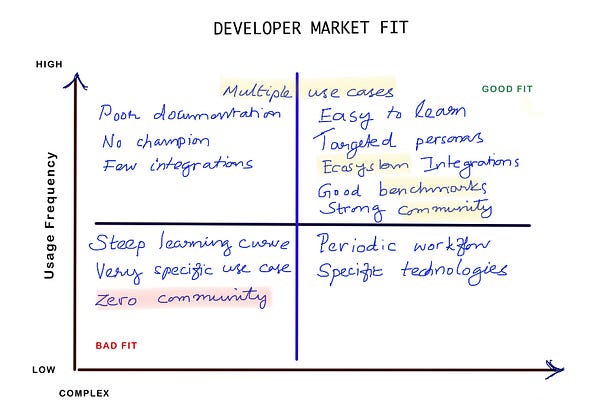 DEVELOPER MARKET FIT
HIGH
GOOD FIT
Multiple use cases
Poor documentation
No champion
Few integrations
Easy to learn
Targeted personas
Ecosystem Integrations
Good benchmarks
Strong community
Usage Frequency
Steep learning curve
Very specific use case
Zero community
BAD FIT
Periodic workflow
Specific technologies
LOW
COMPLEX